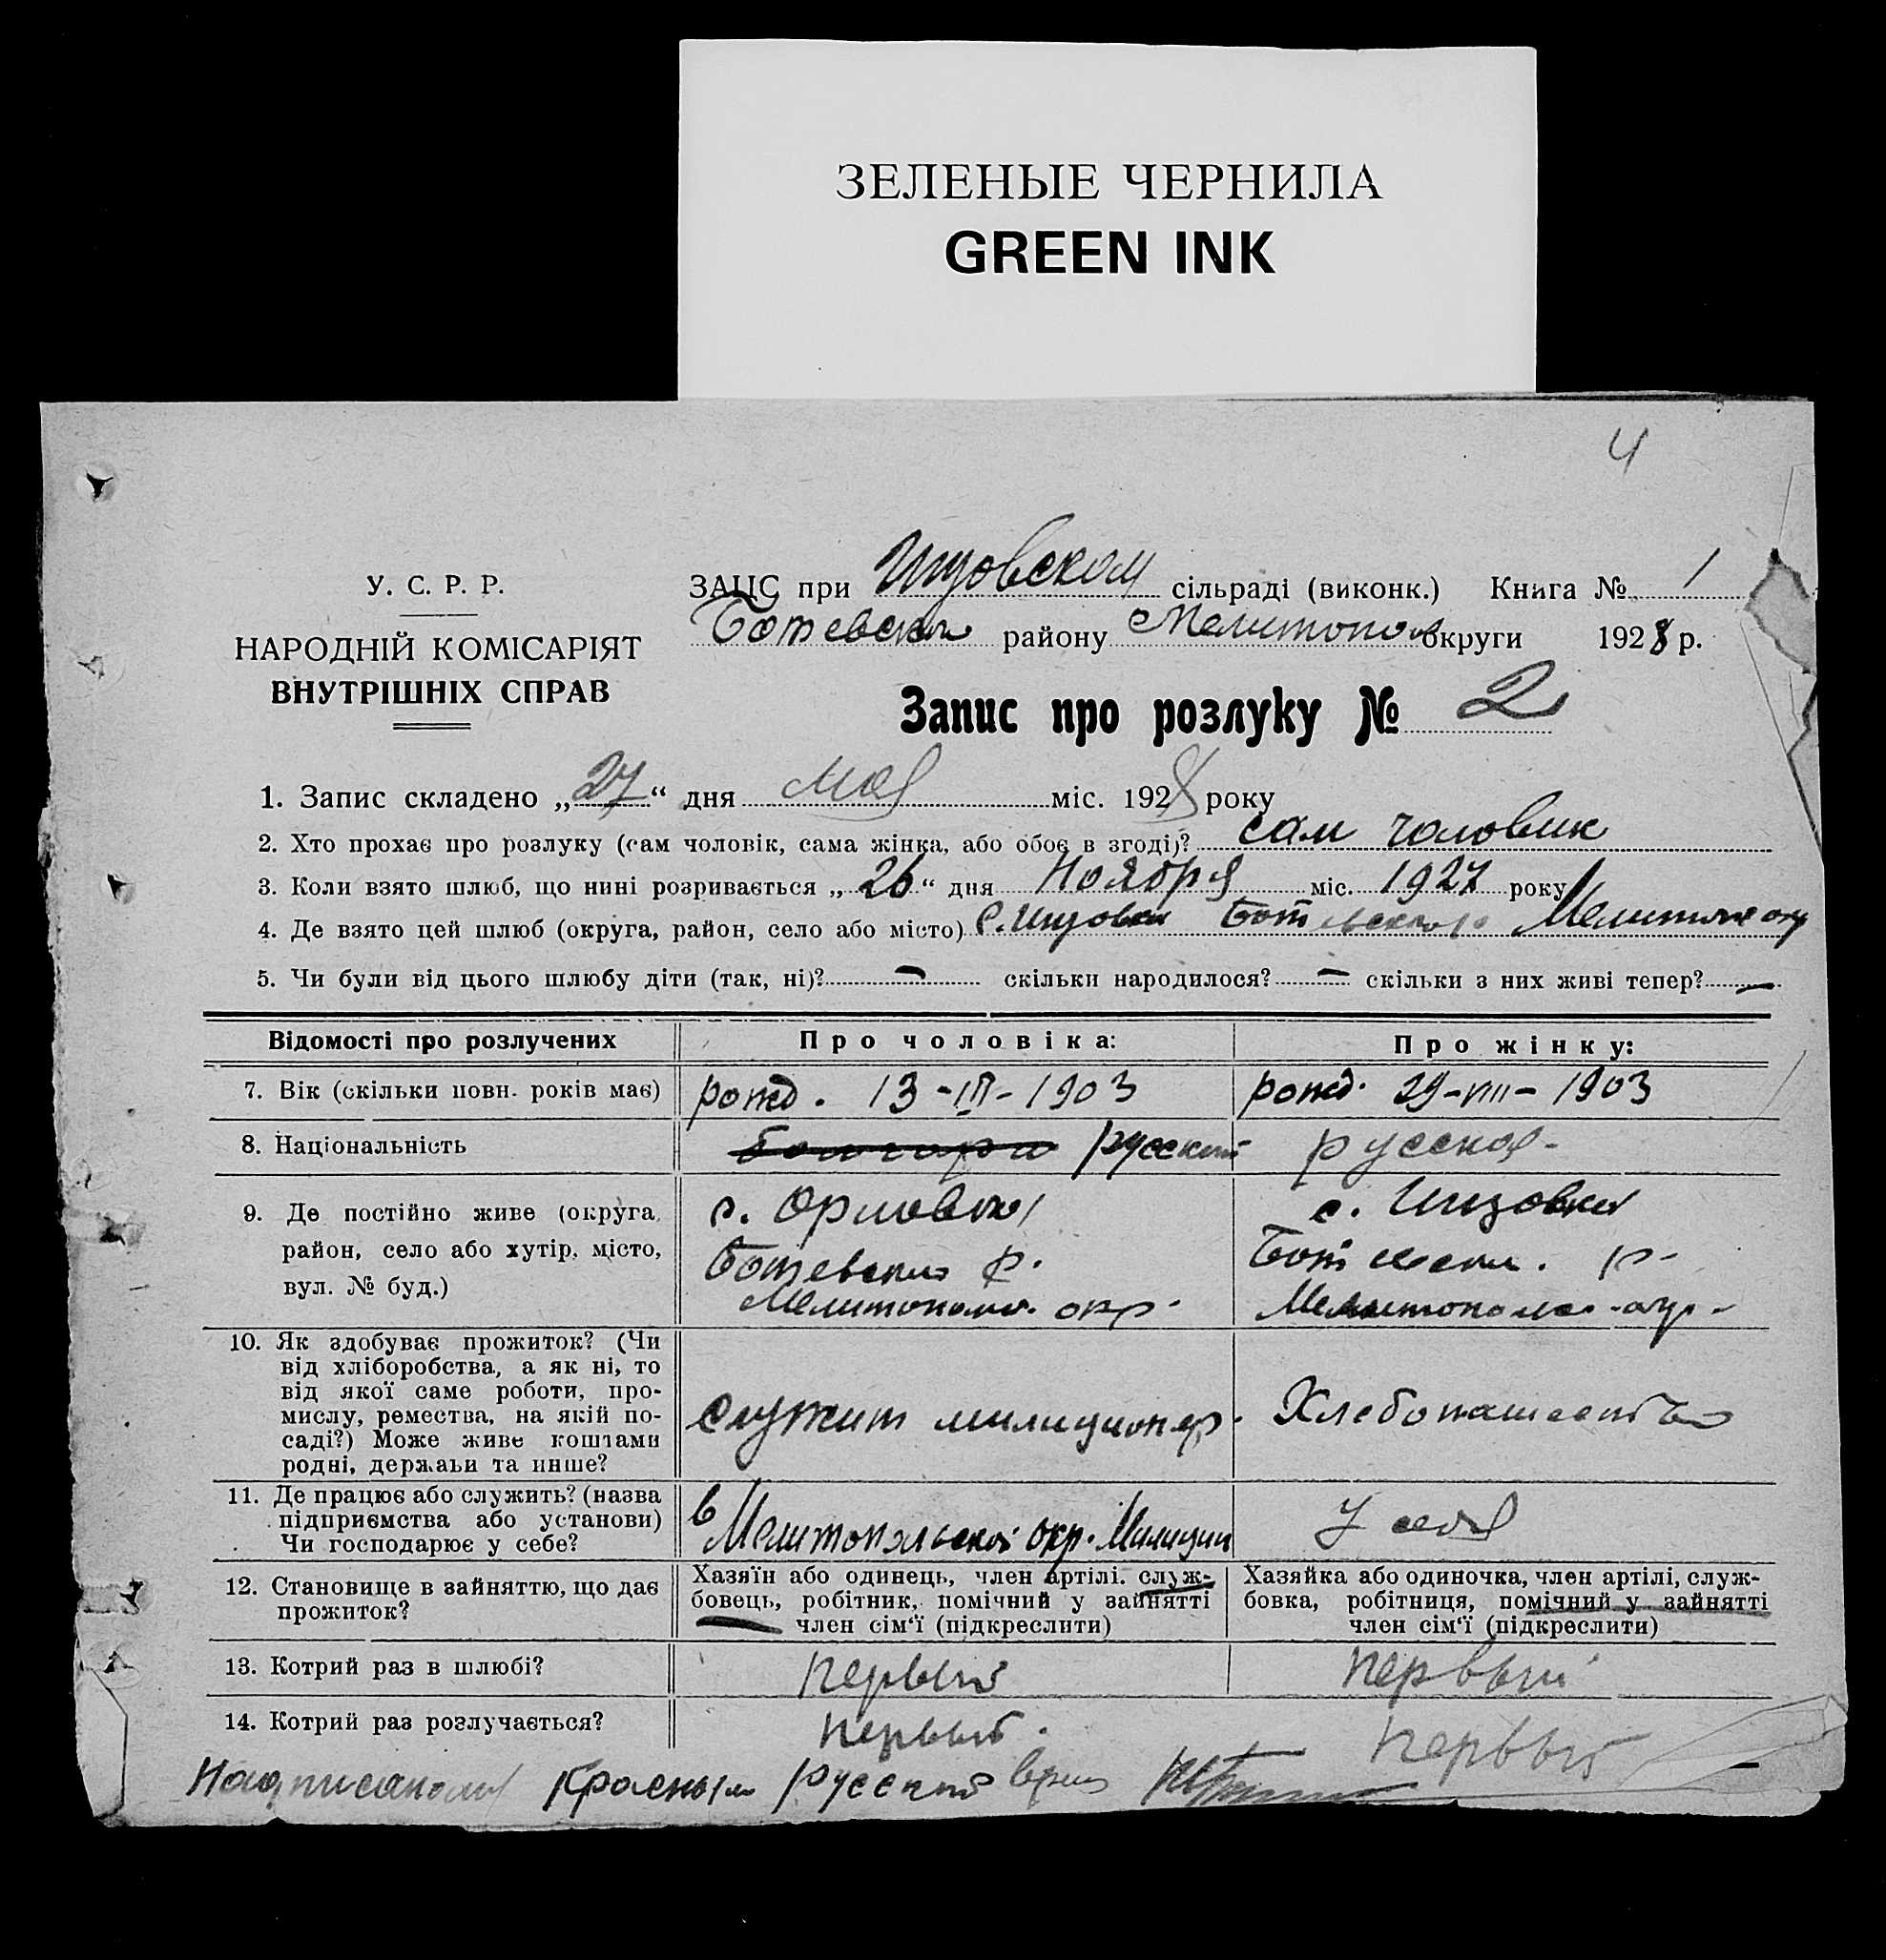 ЗЕЛЕНЫЕ ЧЕРНИЛА
GREEN INK
4
У. С. Р. Р.
НАРОДНІЙ КОМІСАРІЯТ
ВНУТРІШНІХ СПРАВ
ЗАЦС при сільраді (виконк.) Книга № 1
району округи 1928 р.
Запис про розлуку № 2
1. Запис складено „27“ дня мая міс. 1928 року
2. Хто прохає про розлуку (сам чоловік, сама жінка, або обоє в згоді)? сам чоловик
3. Коли взято шлюб, що нині розривається „26“ дня Ноября міс. 1927 року
4. Де взято цей шлюб (округа, район, село або місто)
5. Чи були від цього шлюбу діти (так, ні)? — скільки народилося? — скільки з них живі тепер? —
Відомості про розлучених
Про чоловіка:
Про жінку:
7. Вік (скільки повн. років має)
рожд. 13-III-1903
рожд. 29-VIII-1903
8. Національність
русский
русская
9. Де постійно живе (округа,
район, село або хутір, місто,
вул. № буд.)
с. Орловки
Ботевский р.
Мелитополь. окр.
с.
р-
10. Як здобуває прожиток? (Чи
від хліборобства, а як ні, то
від якої саме роботи, про-
мислу, ремества, на якій по-
саді?) Може живе коштами
родні, держави та инше?
служит милиционер.
Хлебопашество
11. Де працює або служить? (назва
підприємства або установи)
Чи господарює у себе?
в
Мелитопольской окр. Милиции
У себя
12. Становище в зайняттю, що дає
прожиток?
Хазяїн або одинець, член артілі, служ-
бовець, робітник, помічний у зайнятті
член сім'ї (підкреслити)
Хазяйка або одиночка, член артілі, служ-
бовка, робітниця, помічний у зайнятті
член сім'ї (підкреслити)
13. Котрий раз в шлюбі?
первый
первый
14. Котрий раз розлучається?
первый.
первый
русский